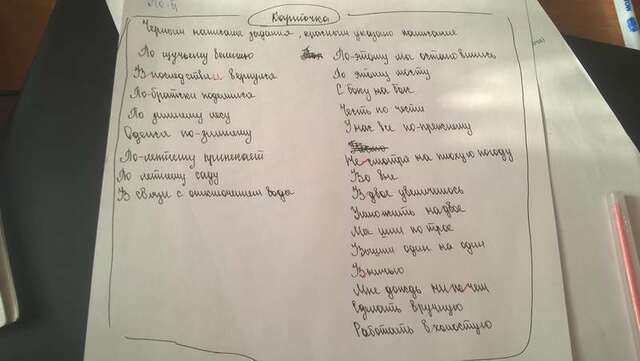 Карточка
Черным написаны задания, красным указано написание
По щучьему велению
Впоследствии вернулся
По-братски поделился
По зимнему лесу
Оделся по-зимнему
По-летнему припекает
По летнему саду
В связи с отключением воды
По-этому мы остановились
По этому мосту
С боку на бок
Честь по чести
У нас все по-прежнему
Не смотря на плохую погоду
Во вне
В двое увеличилось
Умножить на двое
Мы шли по трое
Вышли один на один
В ничью
Мне дождь ни по чем
Сделать вручную
Работать в холостую